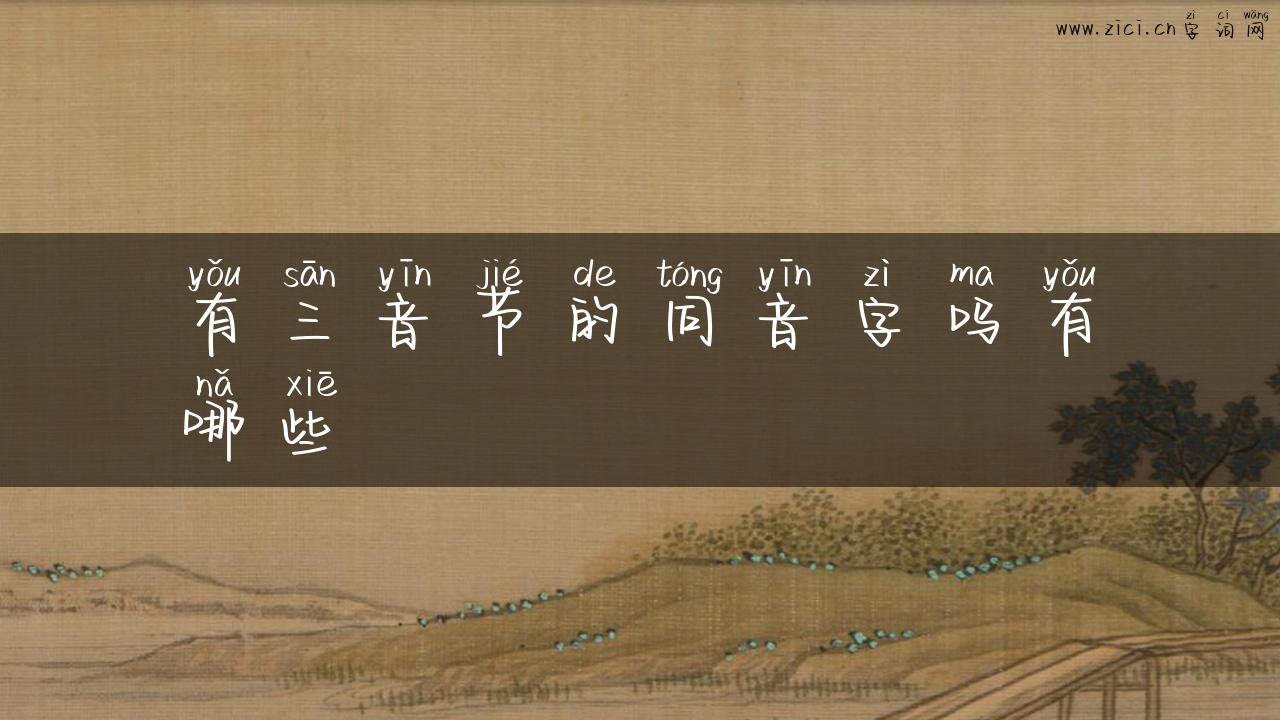 zì cí wǎng
www.zici.cn 字 词 网
yǒu sān yīn jié de tóng yīn zì ma yǒu
有 三 音 节 的 同 音 字 吗 有
nǎ xiē
哪 些